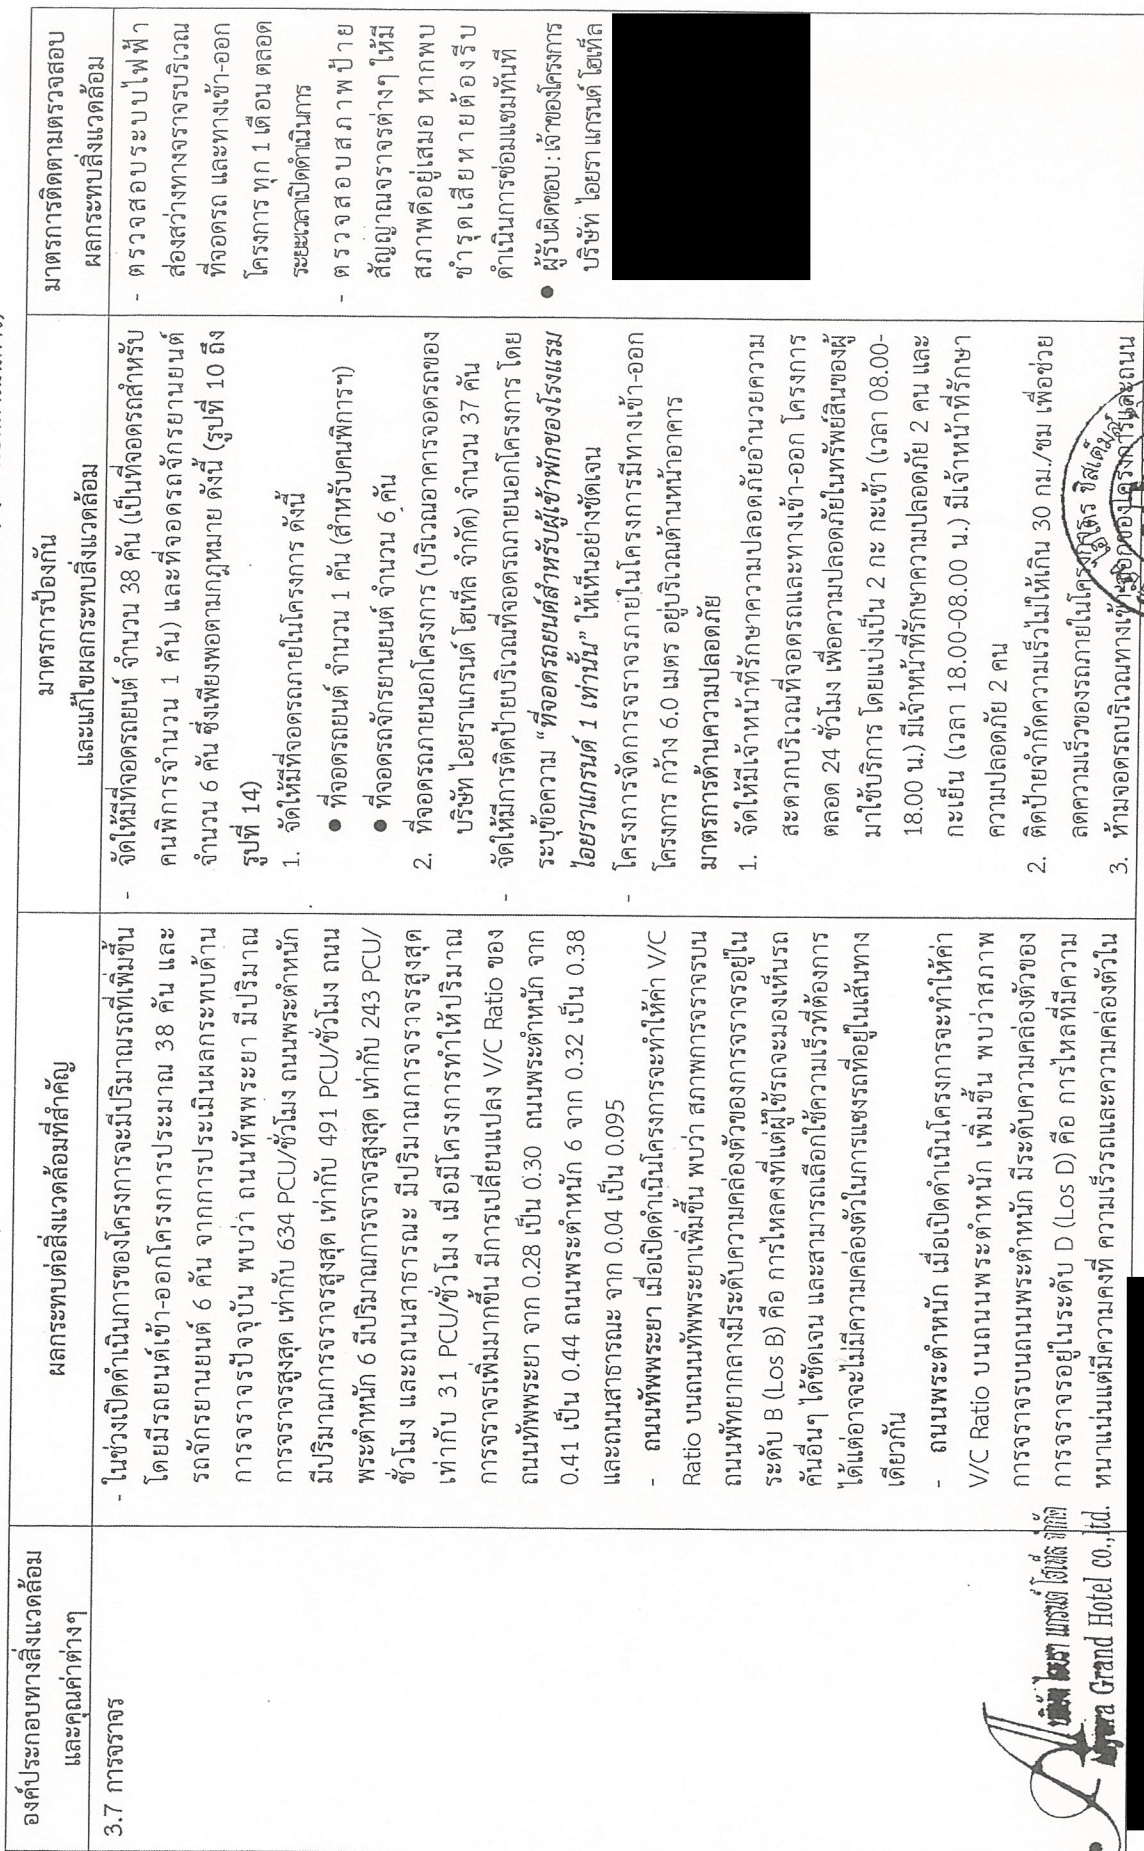 องค์ประกอบทางสิ่งแวดล้อม
และคุณค่าต่างๆ
ผลกระทบต่อสิ่งแวดล้อมที่สำคัญ
มาตรการป้องกัน
และแก้ไขผลกระทบสิ่งแวดล้อม
มาตรการติดตามตรวจสอบ
ผลกระทบสิ่งแวดล้อม
3.7 การจราจร
- ในช่วงเปิดดำเนินการของโครงการจะมีปริมาณรถที่เพิ่มขึ้น
โดยมีรถยนต์เข้า-ออกโครงการประมาณ 38 คัน และ
รถจักรยานยนต์ 6 คัน จากการประเมินผลกระทบด้าน
การจราจรปัจจุบัน พบว่า ถนนทัพพระยา มีปริมาณ
การจราจรสูงสุด เท่ากับ 634 PCU/ชั่วโมง ถนนพระตำหนัก
มีปริมาณการจราจรสูงสุด เท่ากับ 491 PCU/ชั่วโมง ถนน
พระตำหนัก 6 มีปริมาณการจราจรสูงสุด เท่ากับ 243 PCU/
ชั่วโมง และถนนสาธารณะ มีปริมาณการจราจรสูงสุด
เท่ากับ 31 PCU/ชั่วโมง เมื่อมีโครงการทำให้ปริมาณ
การจราจรเพิ่มมากขึ้น มีการเปลี่ยนแปลง V/C Ratio ของ
ถนนทัพพระยา จาก 0.28 เป็น 0.30 ถนนพระตำหนัก จาก
0.41 เป็น 0.44 ถนนพระตำหนัก 6 จาก 0.32 เป็น 0.38
และถนนสาธารณะ จาก 0.04 เป็น 0.095
- ถนนทัพพระยา เมื่อเปิดดำเนินโครงการจะทำให้ค่า V/C
Ratio บนถนนทัพพระยาเพิ่มขึ้น พบว่า สภาพการจราจรบน
ถนนพัทยากลางมีระดับความคล่องตัวของการจราจรอยู่ใน
ระดับ B (Los B) คือ การไหลคงที่แต่ผู้ใช้รถจะมองเห็นรถ
คันอื่นๆ ได้ชัดเจน และสามารถเลือกใช้ความเร็วที่ต้องการ
ได้แต่อาจจะไม่มีความคล่องตัวในการแซงรถที่อยู่ในเส้นทาง
เดียวกัน
- ถนนพระตำหนัก เมื่อเปิดดำเนินโครงการจะทำให้ค่า
V/C Ratio บนถนนพระตำหนัก เพิ่มขึ้น พบว่าสภาพ
การจราจรบนถนนพระตำหนัก มีระดับความคล่องตัวของ
การจราจรอยู่ในระดับ D (Los D) คือ การไหลที่มีความ
หนาแน่นแต่มีความคงที่ ความเร็วรถและความคล่องตัวใน
- จัดให้มีที่จอดรถยนต์ จำนวน 38 คัน (เป็นที่จอดรถสำหรับ
คนพิการจำนวน 1 คัน) และที่จอดรถจักรยานยนต์
จำนวน 6 คัน ซึ่งเพียงพอตามกฎหมาย ดังนี้ (รูปที่ 10 ถึง
รูปที่ 14)
1. จัดให้มีที่จอดรถภายในโครงการ ดังนี้
● ที่จอดรถยนต์ จำนวน 1 คัน (สำหรับคนพิการฯ)
● ที่จอดรถจักรยานยนต์ จำนวน 6 คัน
2. ที่จอดรถภายนอกโครงการ (บริเวณอาคารจอดรถของ
บริษัท ไอยราแกรนด์ โฮเท็ล จำกัด) จำนวน 37 คัน
- จัดให้มีการติดป้ายบริเวณที่จอดรถภายนอกโครงการ โดย
ระบุข้อความ “ที่จอดรถยนต์สำหรับผู้เข้าพักของโรงแรม
ไอยราแกรนด์ 1 เท่านั้น” ให้เห็นอย่างชัดเจน
- โครงการจัดการจราจรภายในโครงการมีทางเข้า-ออก
โครงการ กว้าง 6.0 เมตร อยู่บริเวณด้านหน้าอาคาร
มาตรการด้านความปลอดภัย
1. จัดให้มีเจ้าหน้าที่รักษาความปลอดภัยอำนวยความ
สะดวกบริเวณที่จอดรถและทางเข้า-ออก โครงการ
ตลอด 24 ชั่วโมง เพื่อความปลอดภัยในทรัพย์สินของผู้
มาใช้บริการ โดยแบ่งเป็น 2 กะ กะเช้า (เวลา 08.00-
18.00 น.) มีเจ้าหน้าที่รักษาความปลอดภัย 2 คน และ
กะเย็น (เวลา 18.00-08.00 น.) มีเจ้าหน้าที่รักษา
ความปลอดภัย 2 คน
2. ติดป้ายจำกัดความเร็วไม่ให้เกิน 30 กม./ชม เพื่อช่วย
ลดความเร็วของรถภายในโครงการ
3. ห้ามจอดรถบริเวณทางเข้า-ออกของโครงการและถนน
- ตรวจสอบระบบไฟฟ้า
ส่องสว่างทางจราจรบริเวณ
ที่จอดรถ และทางเข้า-ออก
โครงการ ทุก 1 เดือน ตลอด
ระยะเวลาเปิดดำเนินการ
- ตรวจสอบสภาพป้าย
สัญญาณจราจรต่างๆ ให้มี
สภาพดีอยู่เสมอ หากพบ
ชำรุดเสียหายต้องรีบ
ดำเนินการซ่อมแซมทันที
● ผู้รับผิดชอบ : เจ้าของโครงการ
บริษัท ไอยรา แกรนด์ โฮเท็ล
บริษัท ไอยรา แกรนด์ โฮเท็ล จำกัด
Aiyara Grand Hotel co.,ltd.